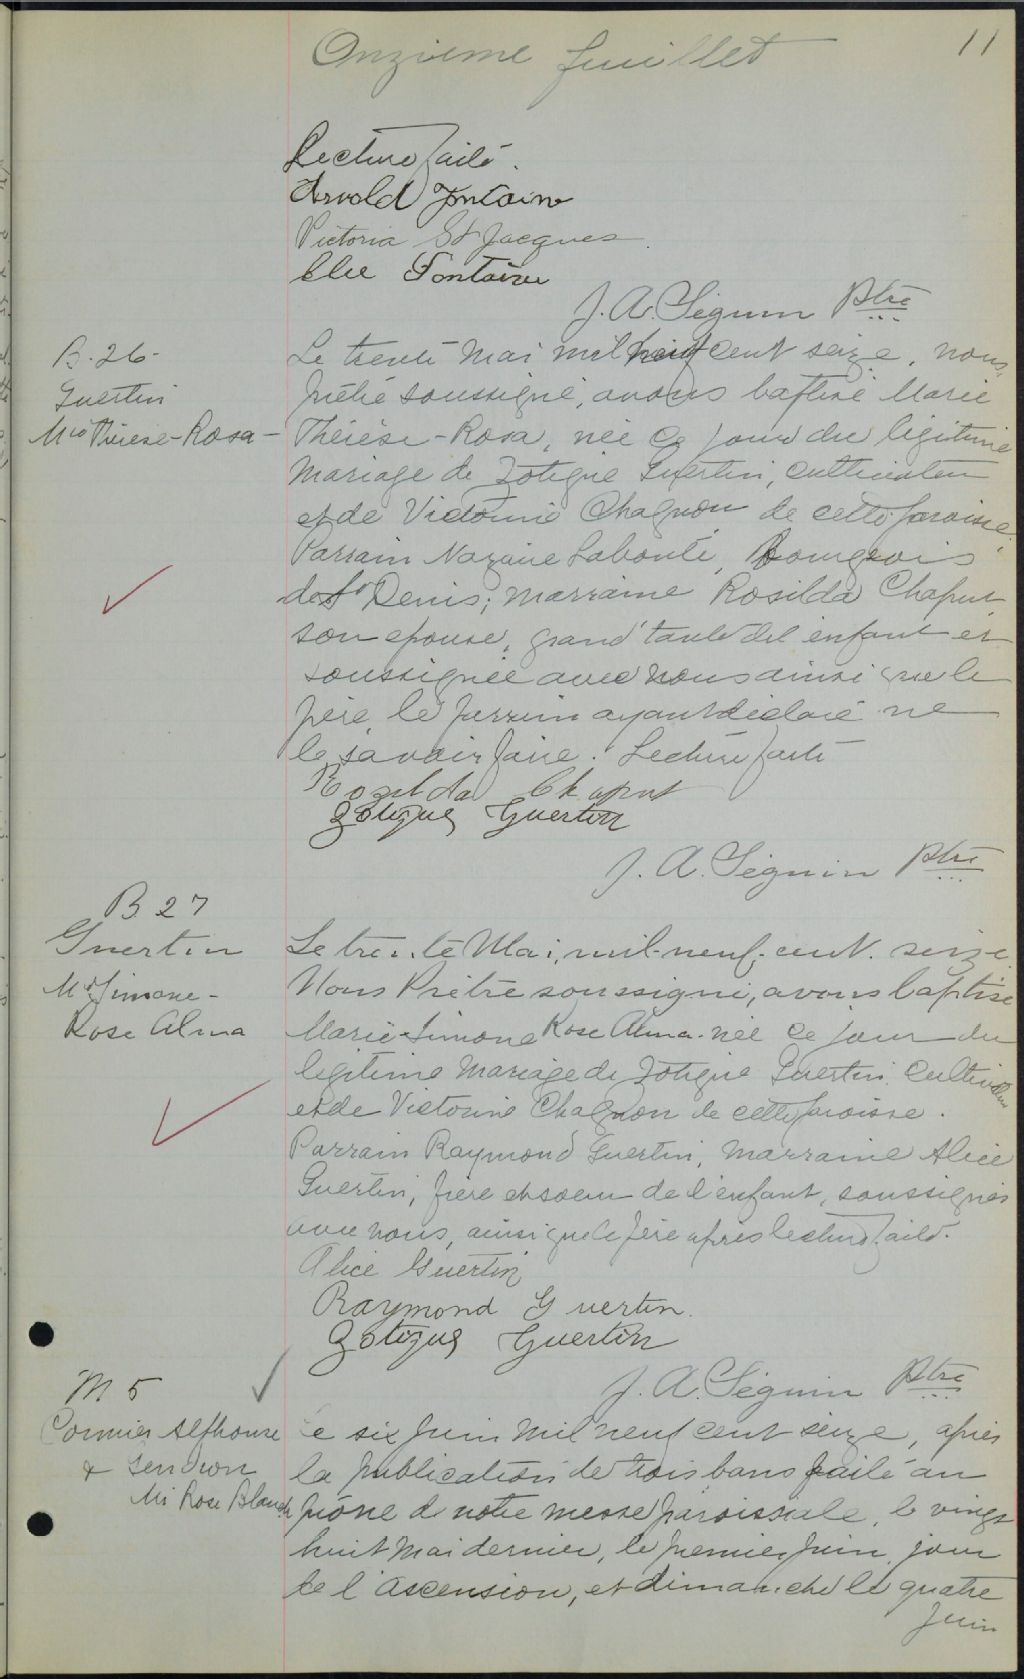 Onzième feuillet
11
Lecture faite.
Arnold Fontaine
Victoria St Jacques.
Elie Fontaine
J. A. Séguin Ptre
B. 26
Guertin
Mie Thérèse-Rosa-
Le trente Mai mil neuf cent seize, nous,
prêtre soussigné, avons baptisé Marie
Thérèse-Rosa, née ce jour du légitime
mariage de Zotique Guertin, cultivateur
et de Victorine Chagnon de cette paroisse.
Parrain Nazaire Labonté, Bourgeois
de St Denis; marraine Rosilda Chaput
son épouse, grand'tante de l'enfant et
soussignée avec nous ainsi que le
père, le parrain ayant déclaré ne
le savoir faire. Lecture faite
Rozilda Chaput
Zotique Guertin
J. A. Séguin Ptre
B 27
Guertin
Me Simone-
Rose Alma
Le trente Mai, mil-neuf-cent seize
Nous Prêtre soussigné, avons baptisé
Marie-Simone Rose Alma née ce jour du
légitime Mariage de Zotique Guertin, Cultivateur
et de Victorine Chagnon de cette paroisse.
Parrain Raymond Guertin, Marraine Alice
Guertin, frère et soeur de l'enfant, soussignés
avec nous, ainsi que le père après lecture faite.
Alice Guertin
Raymond Guertin.
Zotique Guertin
J. A. Séguin Ptre
M 5
Cormier Alphonse
& Gendron
Mie Rose Blanche
Le six Juin Mil neuf cent seize, après
la publication de trois bans faite au
prône de notre messe paroissiale, le vingt
huit Mai dernier, le premier Juin, jour
de l'Ascension, et dimanche le quatre
Juin